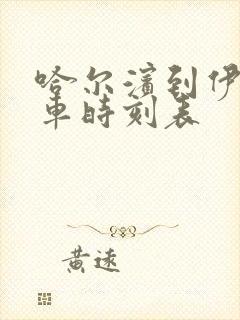 哈尔滨到伊
车时刻表
黄远